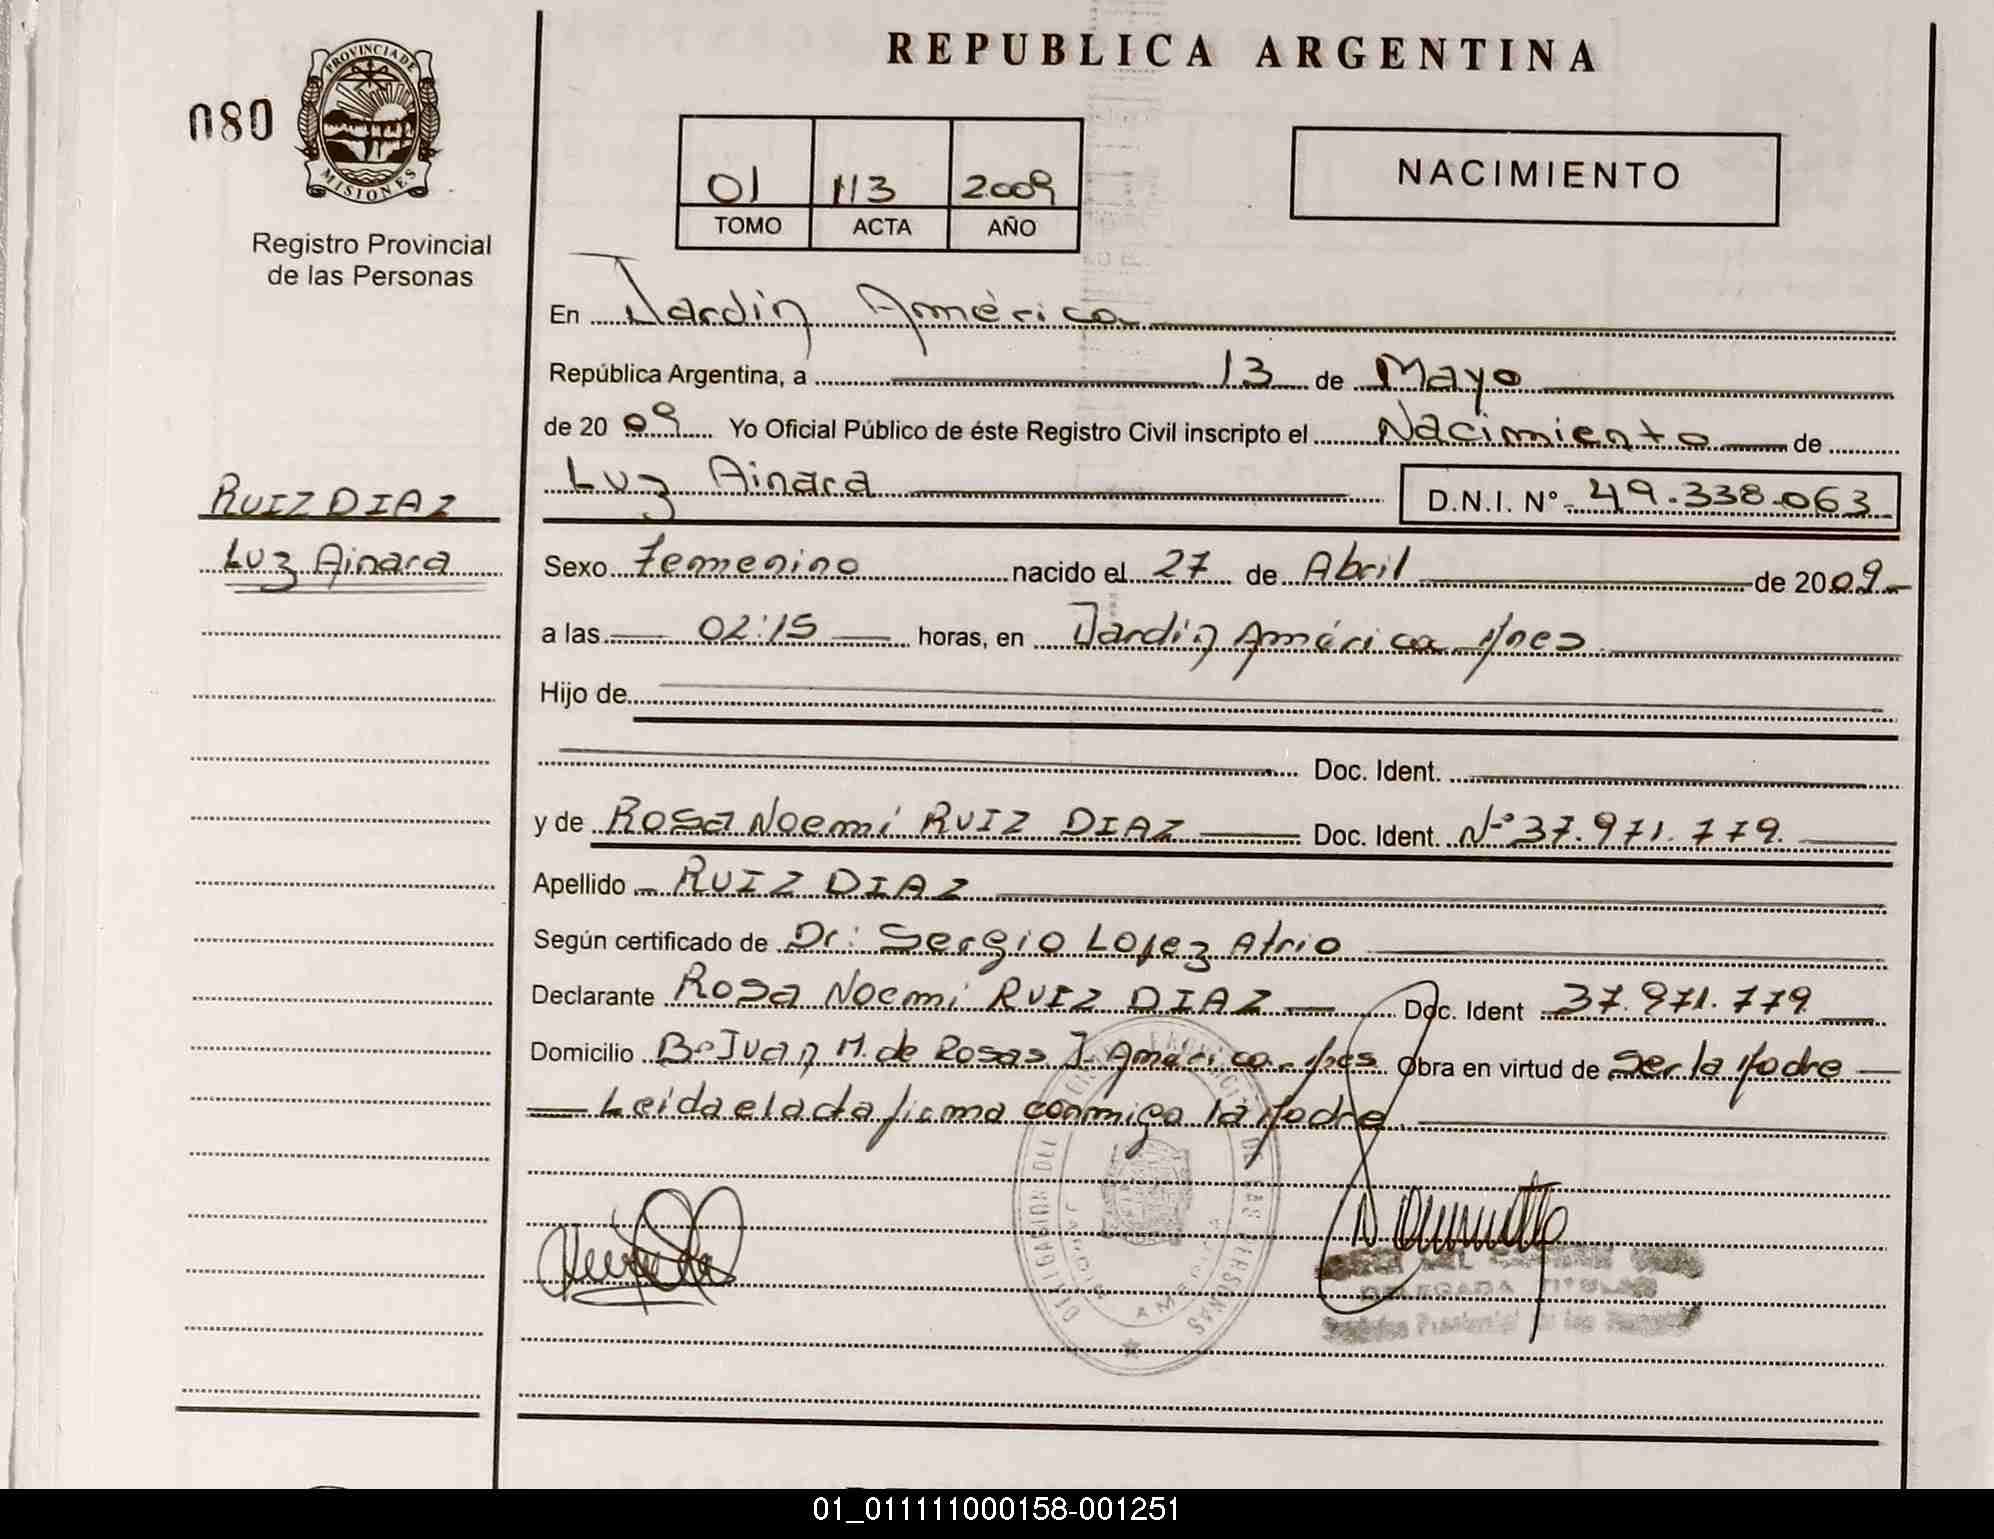 REPUBLICA ARGENTINA
080
PROVINCIA DE
MISIONES
Registro Provincial
de las Personas
01 113 2009
TOMO ACTA AÑO
NACIMIENTO
En Jardín América
República Argentina, a 13 de Mayo
de 2009 Yo Oficial Público de éste Registro Civil inscripto el Nacimiento de
Luz Ainara D.N.I. Nº 49.338.063
RUIZ DIAZ
Luz Ainara
Sexo Femenino nacido el 27 de Abril de 2009
a las 02:15 horas, en Jardín América Mnes
Hijo de
Doc. Ident.
y de Rosa Noemí RUIZ DIAZ Doc. Ident. Nº 37.971.779.
Apellido RUIZ DIAZ
Según certificado de Dr: Sergio Lopez Atrio
Declarante Rosa Noemí RUIZ DIAZ Doc. Ident 37.971.779
Domicilio Bº Juan M. de Rosas J. América Mnes Obra en virtud de Ser la Madre
Leída el acta firma conmigo la Madre.
DELEGACION DEL PROVINCIAL DE LAS PERSONAS
JARDIN AMERICA
DELEGADA TITULAR
Provincial de las
01_011111000158-001251